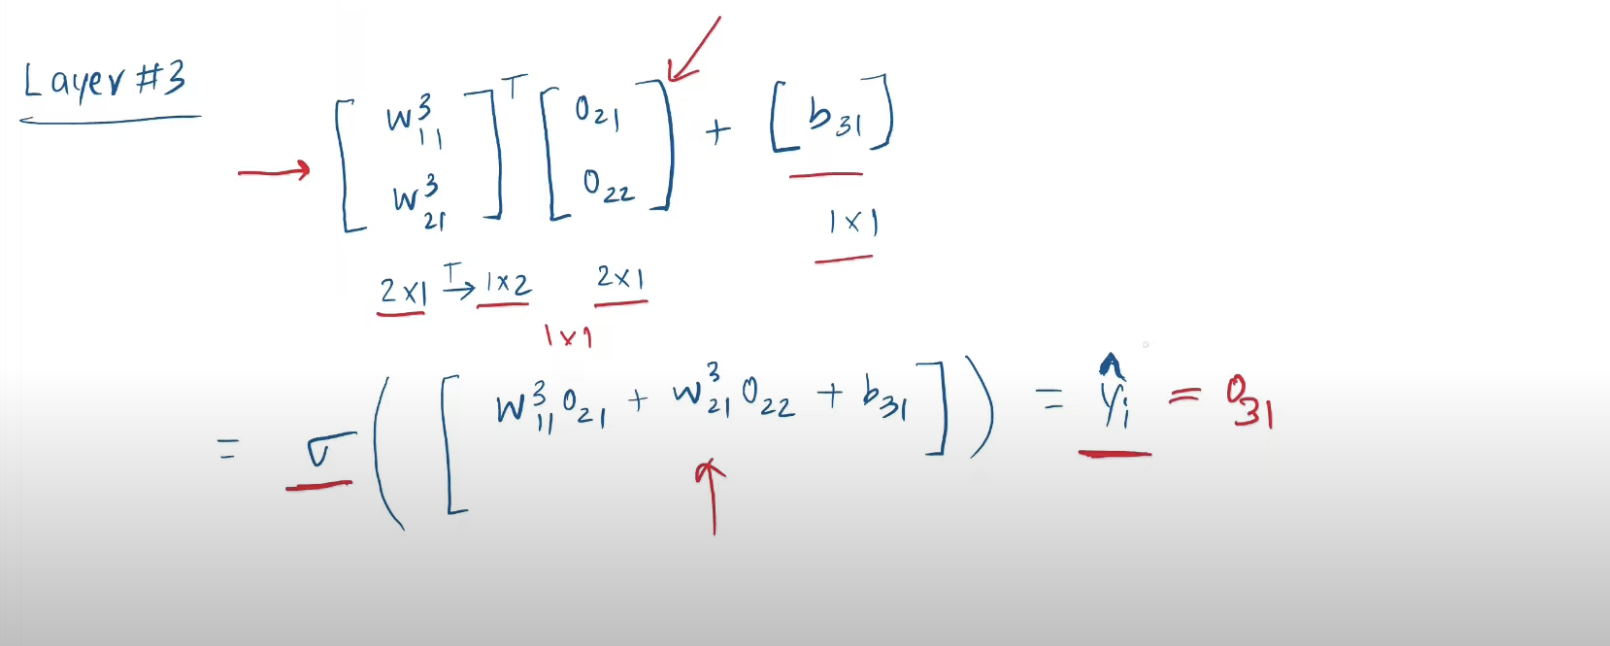 Layer #3
[ w³₁₁ w³₂₁ ]ᵀ [ O₂₁ O₂₂ ] + [ b₃₁ ]
1×1
2×1 T→ 1×2 2×1
1×1
= σ ( [ w³₁₁O₂₁ + w³₂₁O₂₂ + b₃₁ ] ) = ŷᵢ = O₃₁